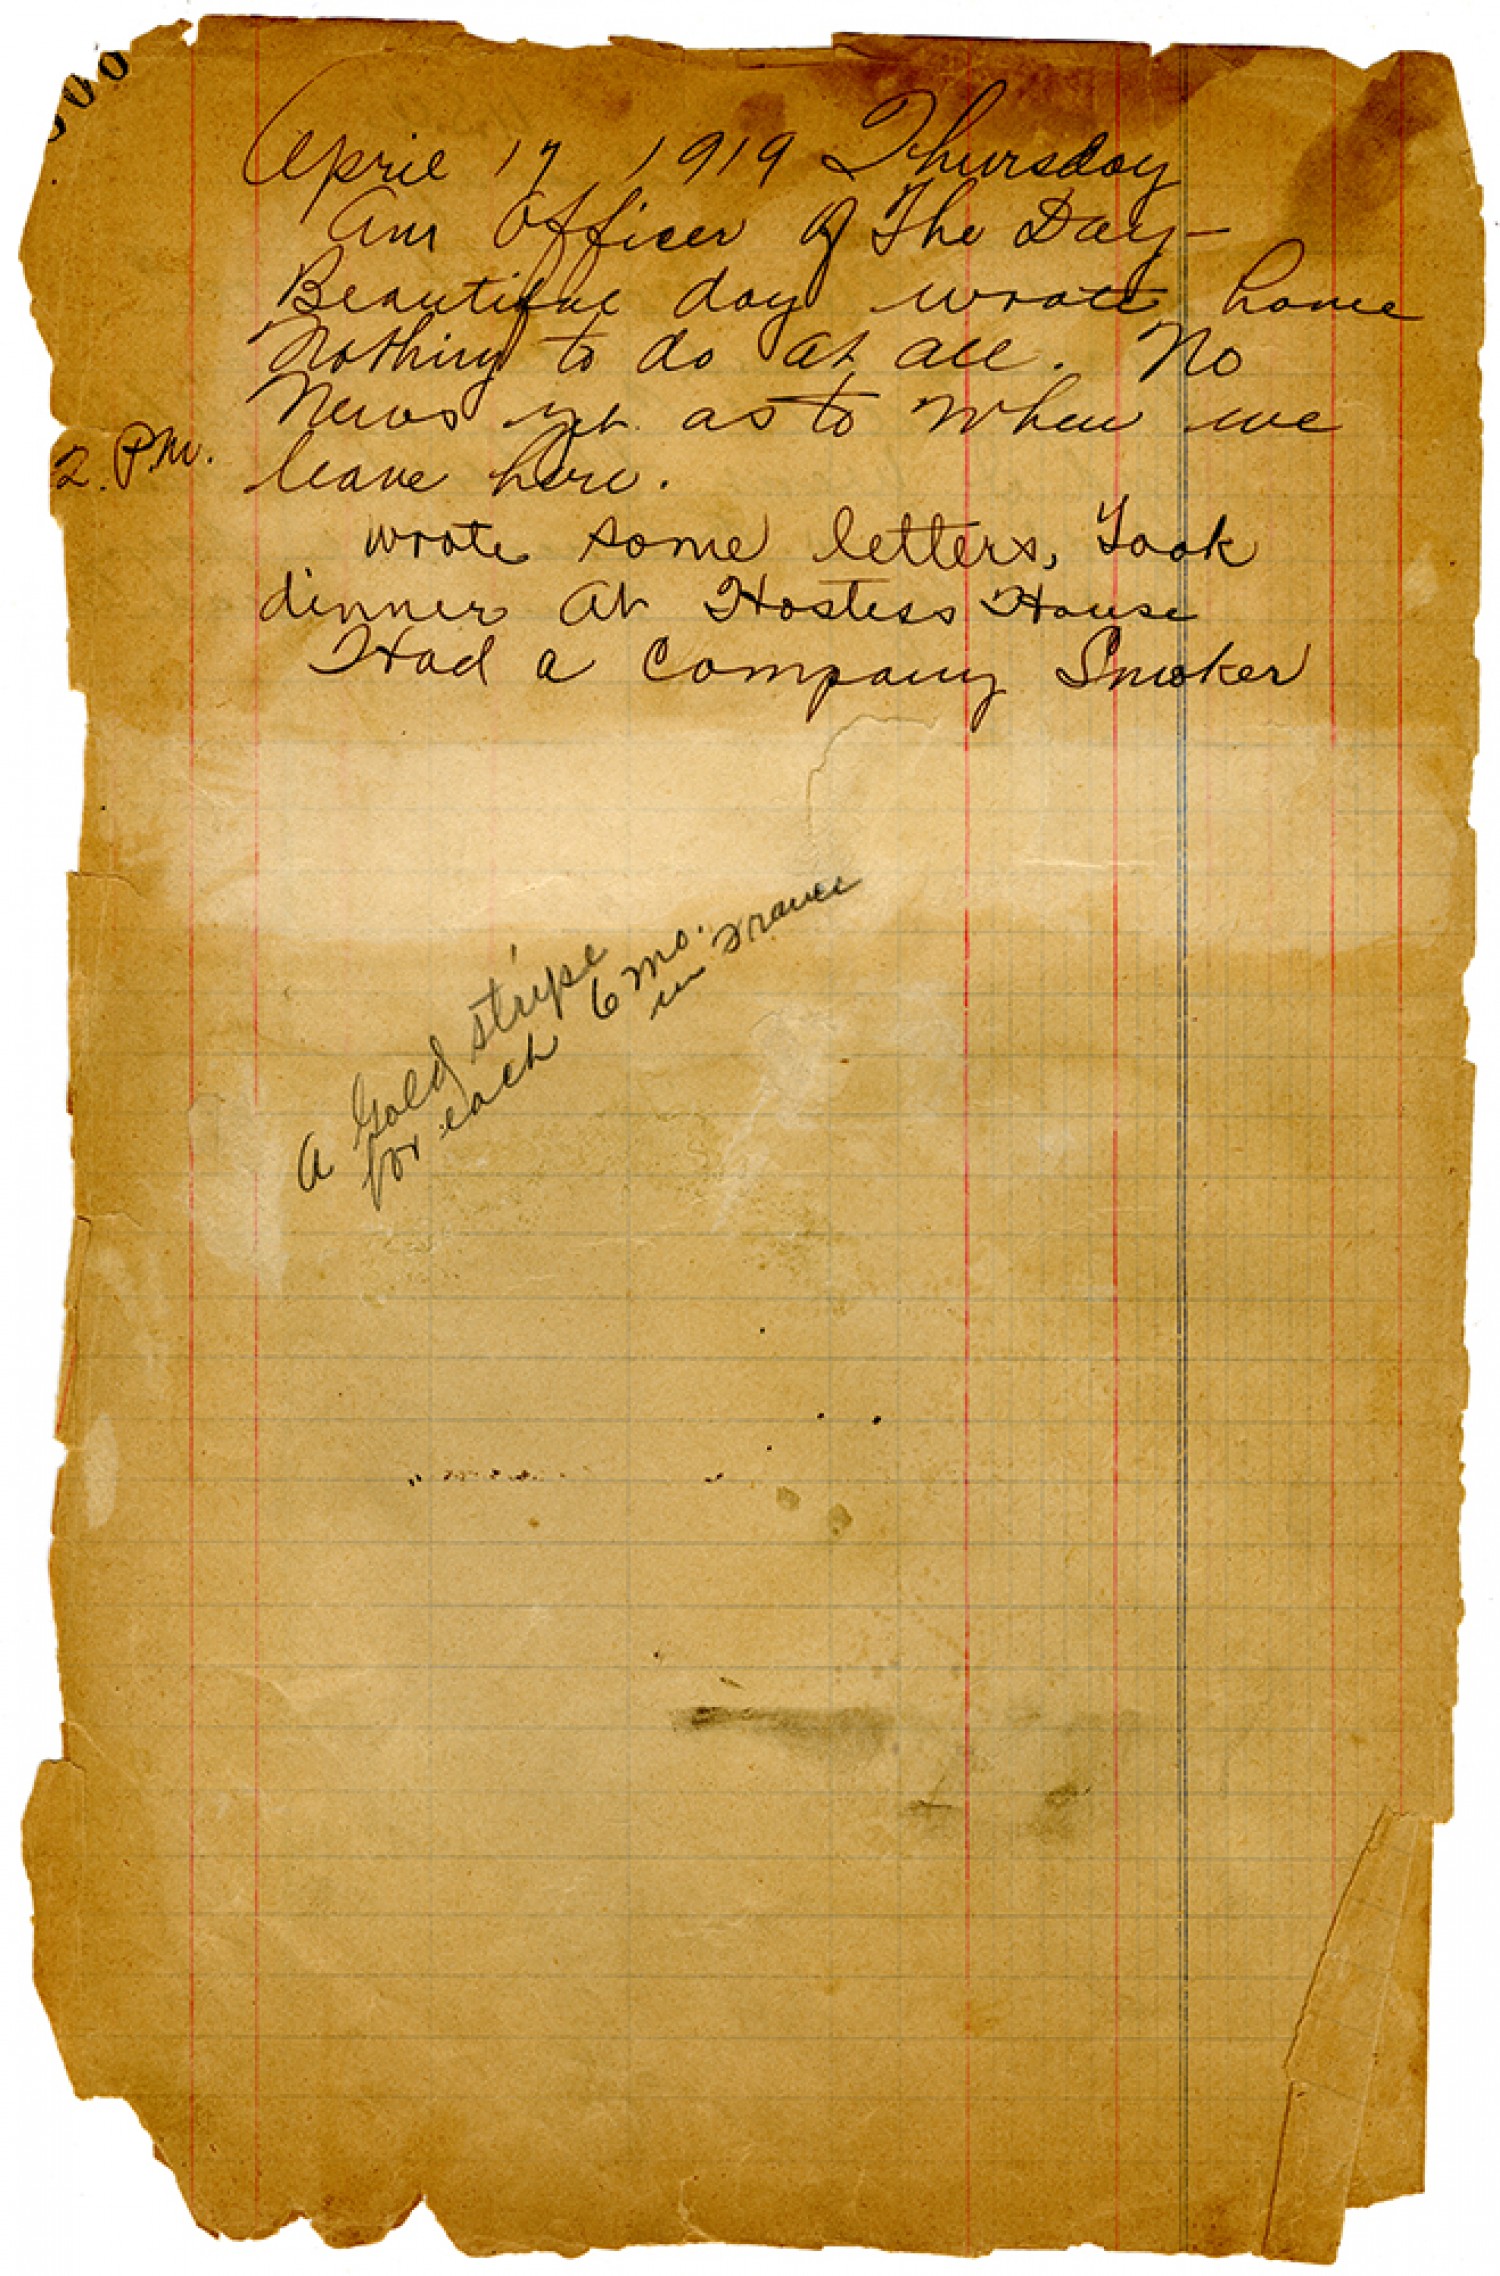 April 17, 1919 Thursday
Am Officer of The Day —
Beautiful day wrote home
Nothing to do at all. No
News yet as to when we
2. P.M. leave here.
wrote some letters, Took
dinner at Hostess House
Had a Company Smoker
A Gold stripe
for each 6 mo.
in France